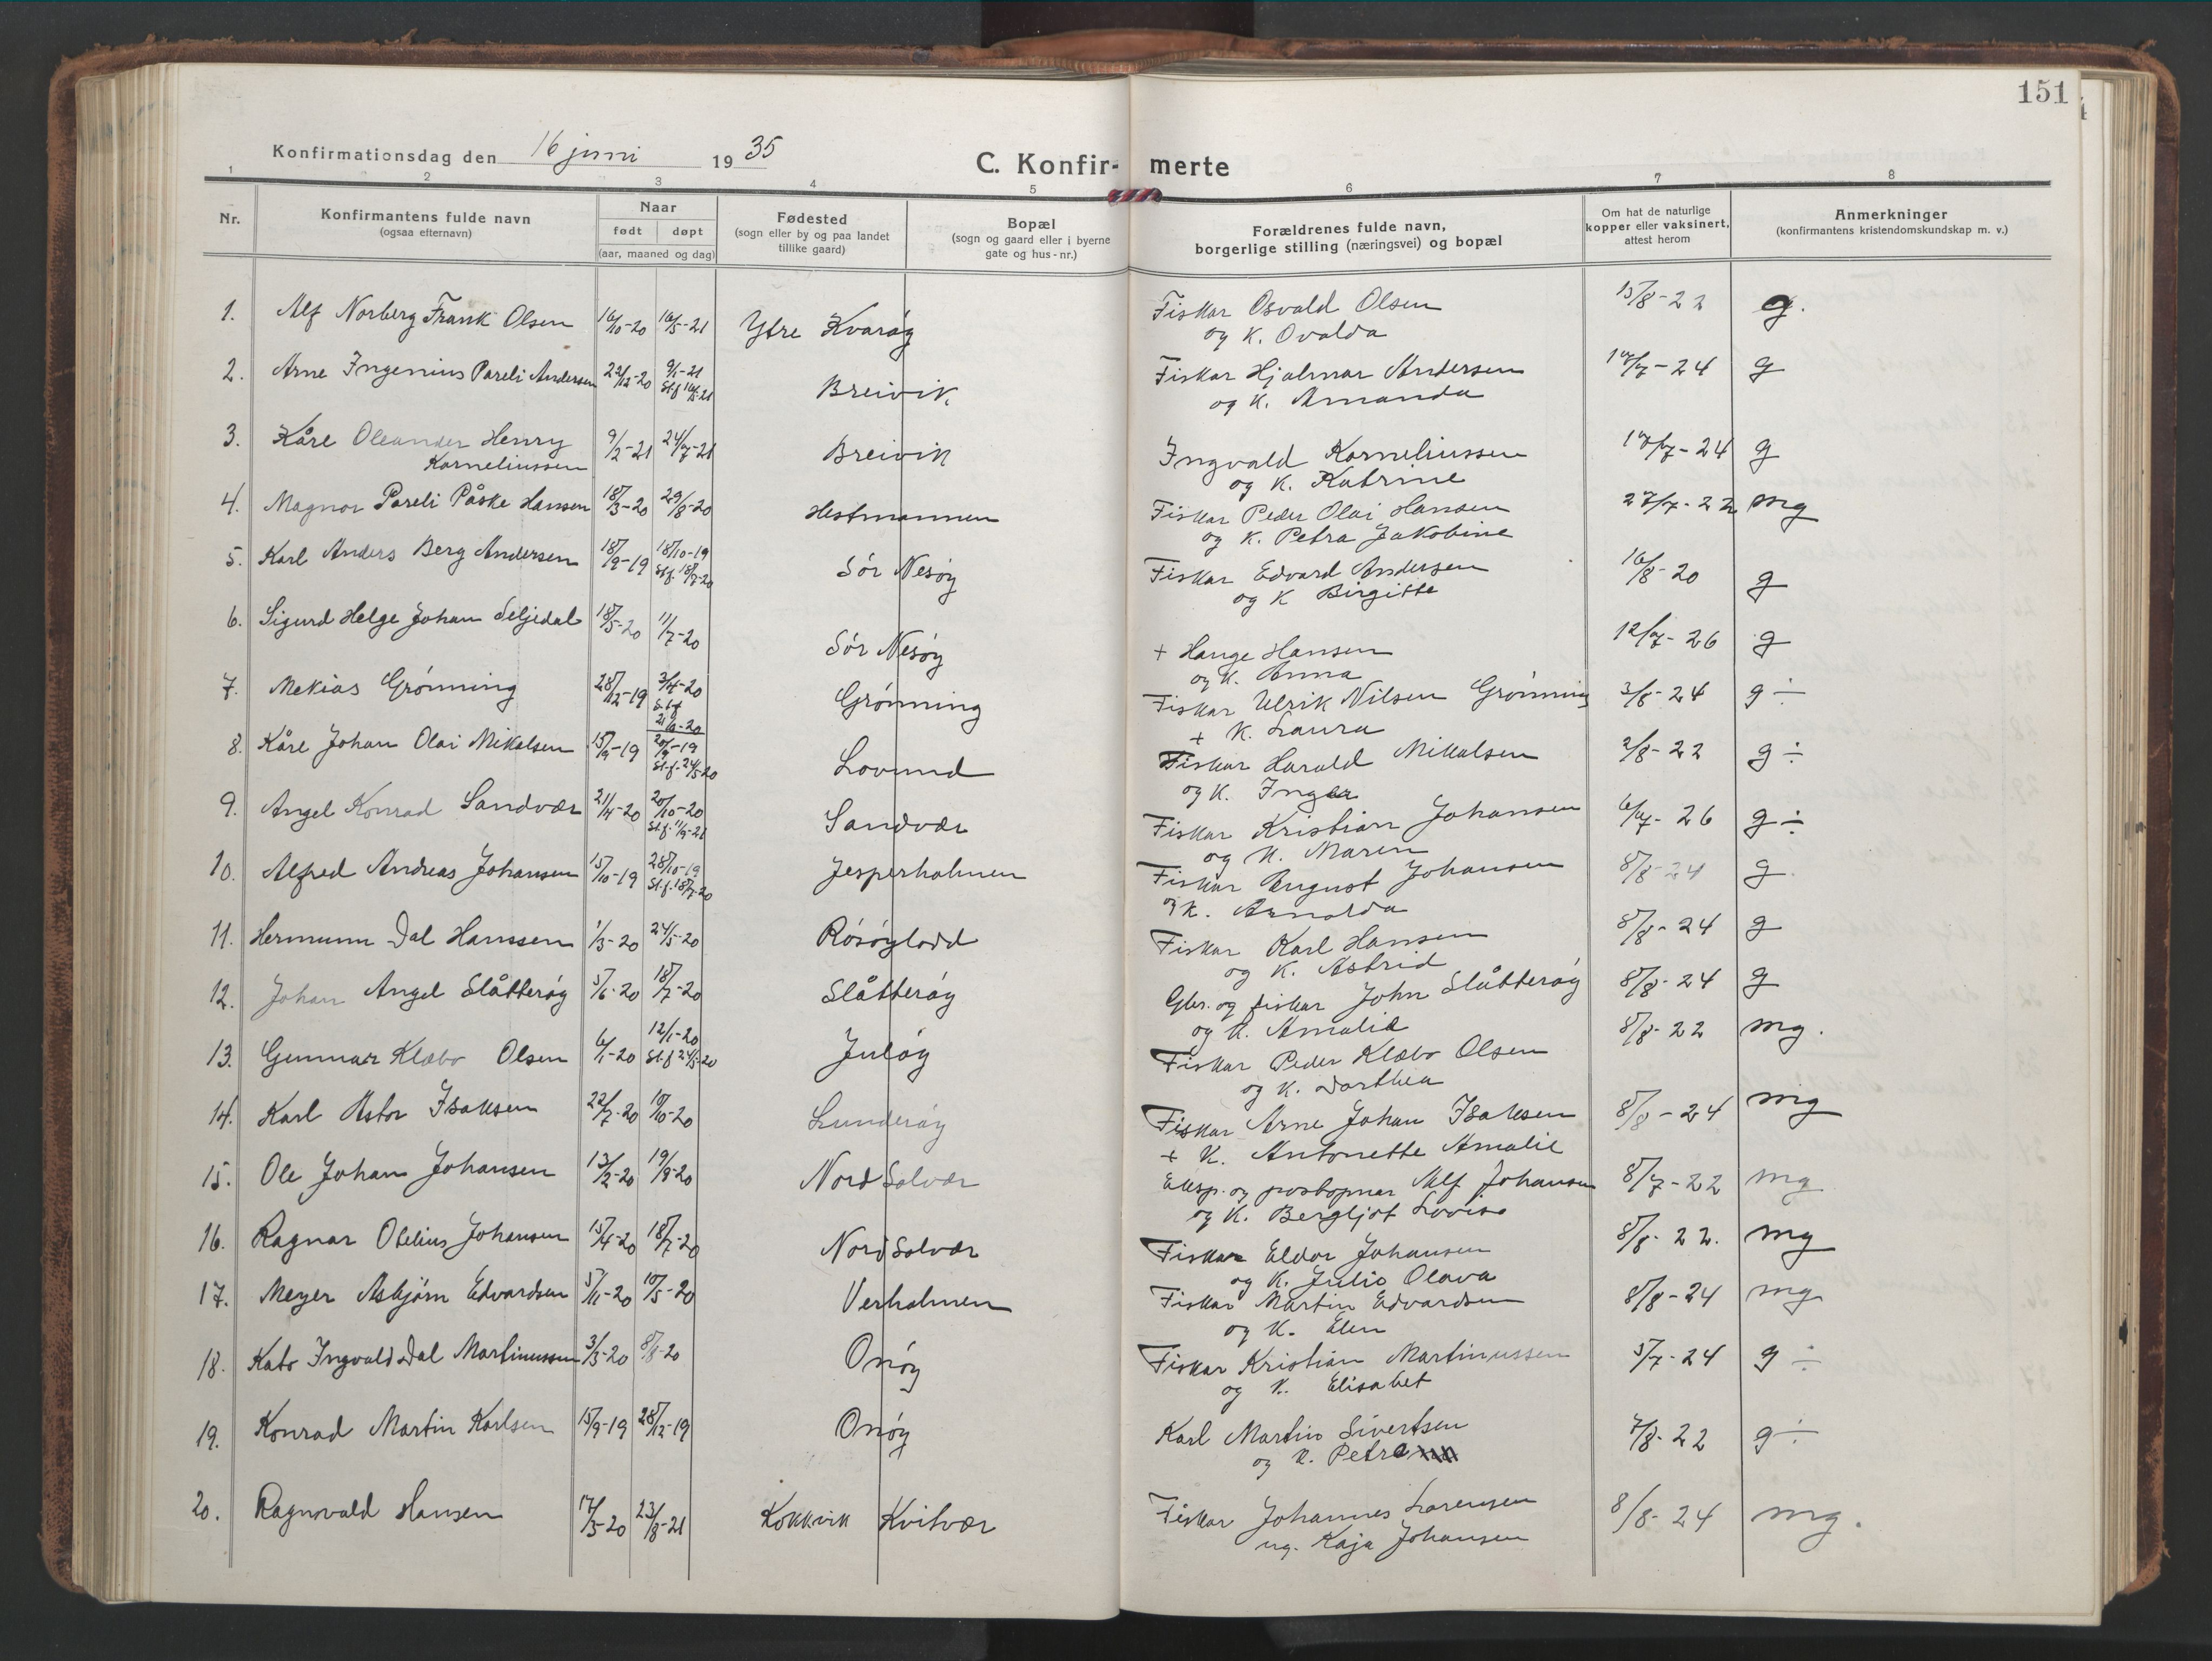 151
Konfirmationsdag den 16 juni 1935
C. Konfir- merte
1 2 3 4 5 6 7 8
Nr.
Konfirmantens fulde navn
(ogsaa efternavn)
Naar
født døpt
(aar, maaned og dag)
Fødested
(sogn eller by og paa landet
tillike gaard)
Bopæl
(sogn og gaard eller i byerne
gate og hus-nr.)
Forældrenes fulde navn,
borgerlige stilling (næringsvei) og bopæl
Om hat de naturlige
kopper eller vaksinert,
attest herom
Anmerkninger
(konfirmantens kristendomskundskap m. v.)
1. Alf Norberg Frank Olsen 16/10-20 16/5-21 Ytre Kvarøy Fiskar Osvald Olsen 15/8-22 g.
og K. Ovalda
2. Arne Ingenius Pareli Andersen 22/12-20 9/1-21 Breivik Fiskar Hjalmar Andersen g
St.f. 16/5-21 og K. Amanda
3. Kåre Oleander Henry 9/2-21 24/7-21 Breivik Ingvald Korneliussen g
Korneliussen og K. Katrine
4. Magnor Pareli Påske Hansen 18/3-20 29/8-20 Hestmannen Fiskar Peder Olai Hansen 27/7-22 mg
og K. Petra Jakobine
5. Karl Anders Berg Andersen 18/9-19 18/10-19 Sør Nesøy Fiskar Edvard Andersen 16/8-20 g
St.f. 18/7-20 og K Birgitte
6. Sigurd Helge Johan Seljedal 18/5-20 11/7-20 Sør Nesøy + Hauge Hansen 12/7-26 g
og K. Anna
7. Mekias Grønning 28/12-19 3/4-20 Grønning Fiskar Ulrik Nilsen Grønning 3/8-24 g ÷
St.f. + K. Laura
8. Kåre Johan Olai Mikalsen 15/9-19 20/9-19 Lovund Fiskar Harald Mikalsen 2/8-22 g ÷
St.f. 24/5-20 og K. Inga
9. Angel Konrad Sandvær 21/4-20 20/10-20 Sandvær Fiskar Kristian Johansen 6/7-26 g ÷
St.f. 11/9-21 og K. Maren
10. Alfred Andreas Johansen 15/10-19 28/10-19 Jesperholmen Fiskar August Johansen 8/8-24 g
St.f. 18/7-20 og K. Arnolda
11. Hermann Dal Hanssen 1/3-20 24/5-20 Røsøylodd Fiskar Karl Hansen 8/8-24 g
og K. Astrid
12. Johan Angel Slåtterøy 5/6-20 18/7-20 Slåtterøy Gbr. og fiskar John Slåtterøy 8/8-24 g
og K. Amalie
13. Gunnar Klæbo Olsen 6/1-20 12/1-20 Juløy Fiskar Peder Klæbo Olsen 8/8-22 mg.
St.f 24/5-20 og K. Dorthea
14. Karl Astor Isaksen 22/7-20 10/10-20 Lunderøy Fiskar Arne Johan Isaksen 8/8-24 mg
+ K. Antonette Amalie
15. Ole Johan Johansen 13/2-20 19/9-20 Nord Solvær Eksp. og postopnar Alf Johansen 8/7-22 mg
og K. Bergljot Lovise
16. Ragnar Otelius Johansen 15/4-20 18/7-20 Nord Solvær Fiskar Eldor Johansen 8/8-22. mg
og K. Julie Olava
17. Meyer Asbjørn Edvardsen 5/11-20 10/5-20 Verholmen Fiskar Martin Edvardsen 8/8-24 mg
og K. Elen
18. Kato Ingvald Dal Martinussen 3/3-20 8/8-20 Onøy Fiskar Kristian Martinussen 5/7-24 g ÷
og K. Elisabet
19. Konrad Martin Karlsen 15/9-19 28/12-19 Onøy Karl Martin Sivertsen 7/8-22 g ÷
og K. Petra
20. Ragnvald Hansen 17/3-20 23/8-21 Kokkvik Kvitvær Fiskar Johannes Lorensen 8/8-24 mg.
ug. Kaja Johansen